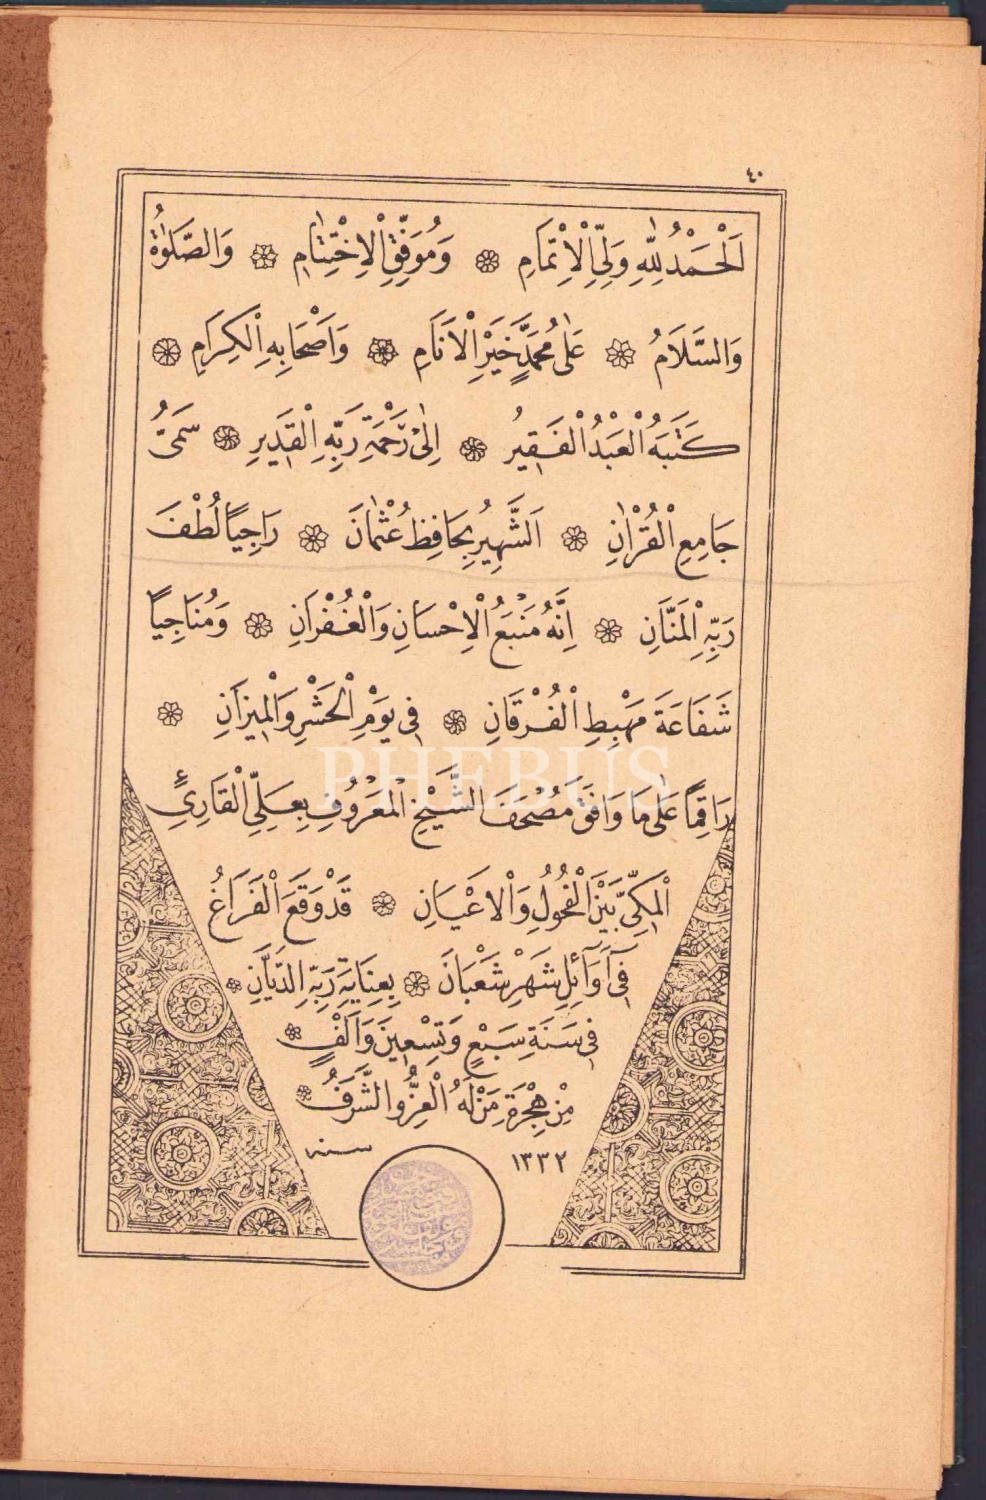 ٤٠
اَلْحَمْدُ لِلّٰهِ وَلِيِّ الْاِتْمَامِ ۞ وَمُوَفِّقِ الْاِخْتِتَامِ ۞ وَالصَّلٰوةُ
وَالسَّلَامُ ۞ عَلٰى مُحَمَّدٍ خَيْرِ الْاَنَامِ ۞ وَاَصْحَابِهِ الْكِرَامِ ۞
كَتَبَهُ الْعَبْدُ الْفَقِيرُ ۞ اِلٰى رَحْمَةِ رَبِّهِ الْقَدِيرِ ۞ سَمِيُّ
جَامِعِ الْقُرْاٰنِ ۞ اَلشَّهِيرُ بِحَافِظِ عُثْمَانَ ۞ رَاجِيًا لُطْفَ
رَبِّهِ الْمَنَّانِ ۞ اِنَّهُ مَنْبَعُ الْاِحْسَانِ وَالْغُفْرَانِ ۞ وَمُنَاجِيًا
شَفَاعَةَ مَهْبِطِ الْفُرْقَانِ ۞ فِي يَوْمِ الْحَشْرِ وَالْمِيزَانِ ۞
رَاقِمًا عَلٰى مَا وَافَقَ مُصْحَفَ الشَّيْخِ الْمَعْرُوفِ بِعَلِيِّ الْقَارِئِ
الْمَكِّيِّ بَيْنَ الْفُحُولِ وَالْاَعْيَانِ ۞ قَدْ وَقَعَ الْفَرَاغُ
فِي اَوَآئِلِ شَهْرِ شَعْبَانَ ۞ بِعِنَايَةِ رَبِّهِ الدَّيَّانِ ۞
فِي سَنَةِ سَبْعٍ وَتِسْعِينَ وَاَلْفٍ ۞
مِنْ هِجْرَةِ مَنْ لَهُ الْعِزُّ وَالشَّرَفُ ۞
١٣٣٢ سنه
PHEBUS